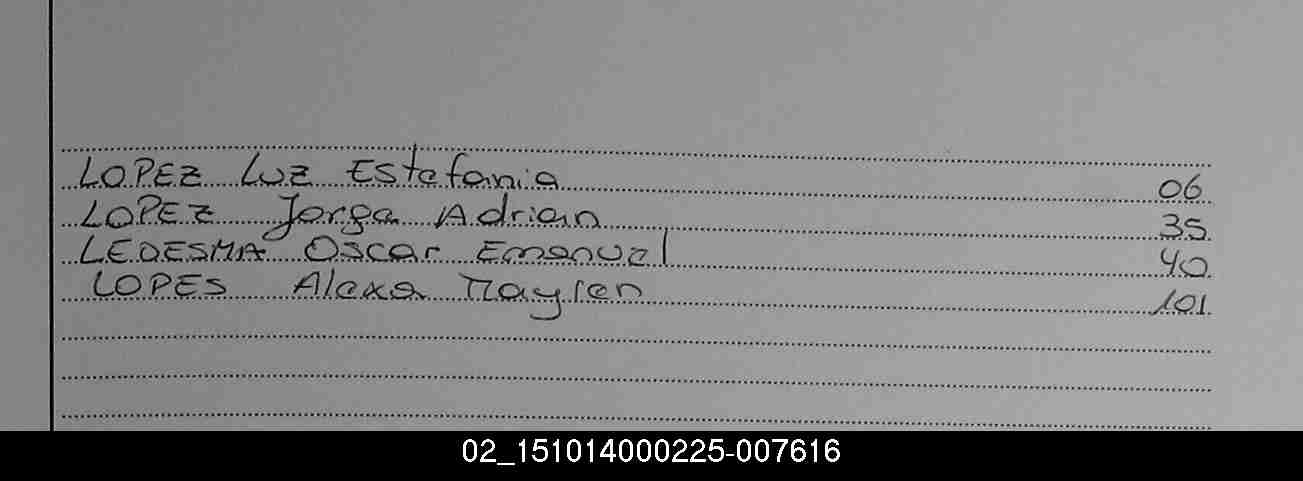 LOPEZ Luz Estefania 06
LOPEZ Jorge Adrian 35
LEDESMA Oscar Emanuel 40
LOPES Alexa Maylen 101
02_151014000225-007616